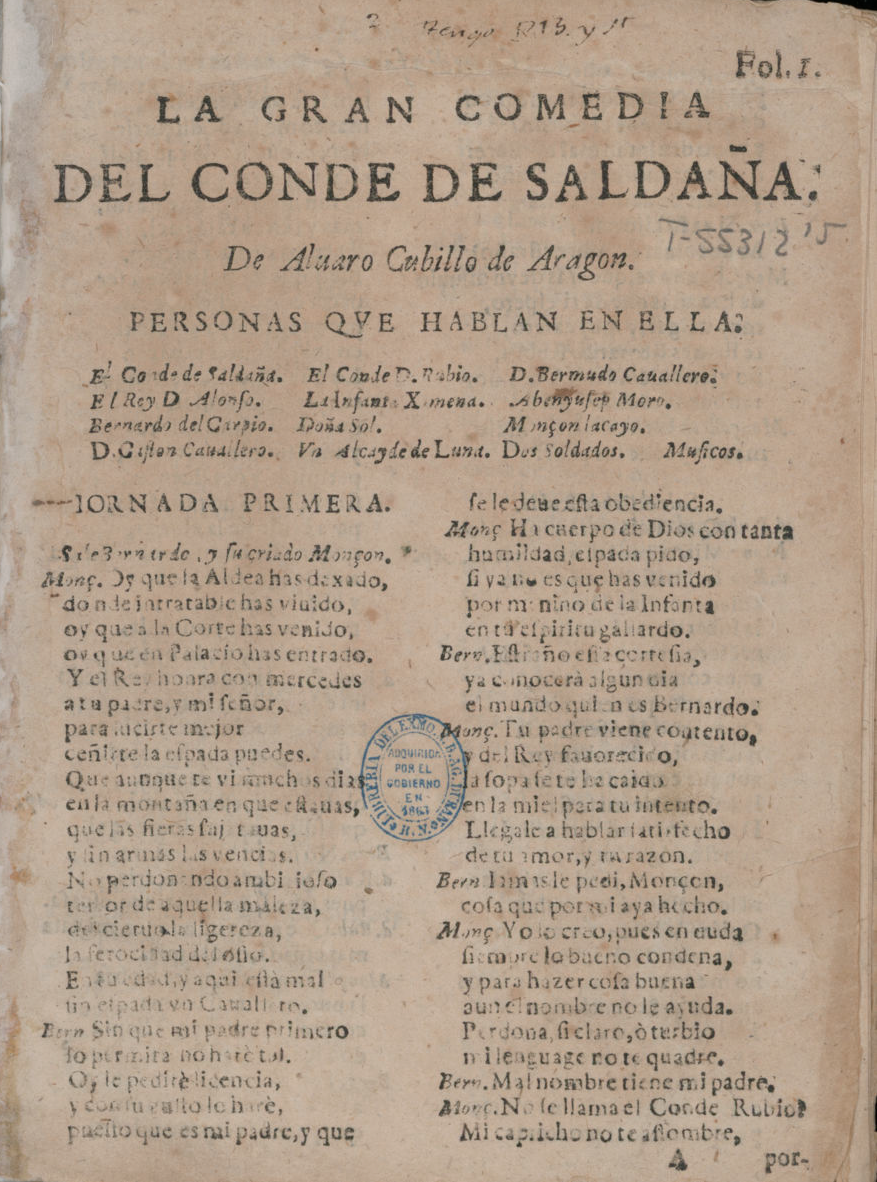 Fol. 1.
LA GRAN COMEDIA
DEL CONDE DE SALDAÑA:
De Aluaro Cubillo de Aragon.
T-55312 15
PERSONAS QVE HABLAN EN ELLA:
El Conde de Saldaña. El Conde D. Rubio. D. Bermudo Cauallero:
El Rey D Alonso. La Infanta Ximena. Abenyusep Moro.
Bernardo del Carpio. Doña Sol. Monçon lacayo.
D. Gaston Cauallero. Vn Alcayde de Luna. Dos Soldados. Musicos.
IORNADA PRIMERA.
Sale Bernardo, y su criado Monçon.
Monç. Oy que la Aldea has dexado,
donde intratable has viuido,
oy que a la Corte has venido,
oy que en Palacio has entrado.
Y el Rey honra con mercedes
a tu padre, y mi señor,
para lucirte mejor
ceñirte la espada puedes.
Que aunque te vi muchos dias
en la montaña en que estauas,
que las fieras
y sin armas las vencias.
No perdonando ambicioso
terror de aquella maleza,
del cieruo la ligereza,
la ferocidad del osso.
En tu edad, y aqui està mal
sin espada vn Cauallero.
Bern Sin que mi padre primero
lo permita no harè tal.
Oy le pedirè licencia,
y con su gusto lo harè,
puesto que es mi padre, y que
se le deue esta obediencia.
Monç Ha cuerpo de Dios con tanta
humildad, espada pido,
si ya no es que has venido
por menino de la Infanta
en tu espiritu gallardo.
Bern. Estraño essa cortesia,
ya conocerà algun dia
el mundo quien es Bernardo.
Monç. Tu padre viene contento,
y del Rey fauorecido,
la sopa se te ha caido
en la miel para tu intento.
Llegale a hablar satisfecho
de tu amor, y tu razon.
Bern Iamas le pedi, Monçon,
cosa que por mi aya hecho.
Monç Yo lo creo, pues en duda
siempre lo bueno condena,
y para hazer cosa buena
aun el nombre no le ayuda.
Perdona, si claro, ò turbio
mi lenguage no te quadre.
Bern. Mal nombre tiene mi padre,
Monç. No se llama el Conde Rubio?
Mi capricho no te assombre,
A por-
ADQUIRIDA
POR EL
GOBIERNO
EN
1863